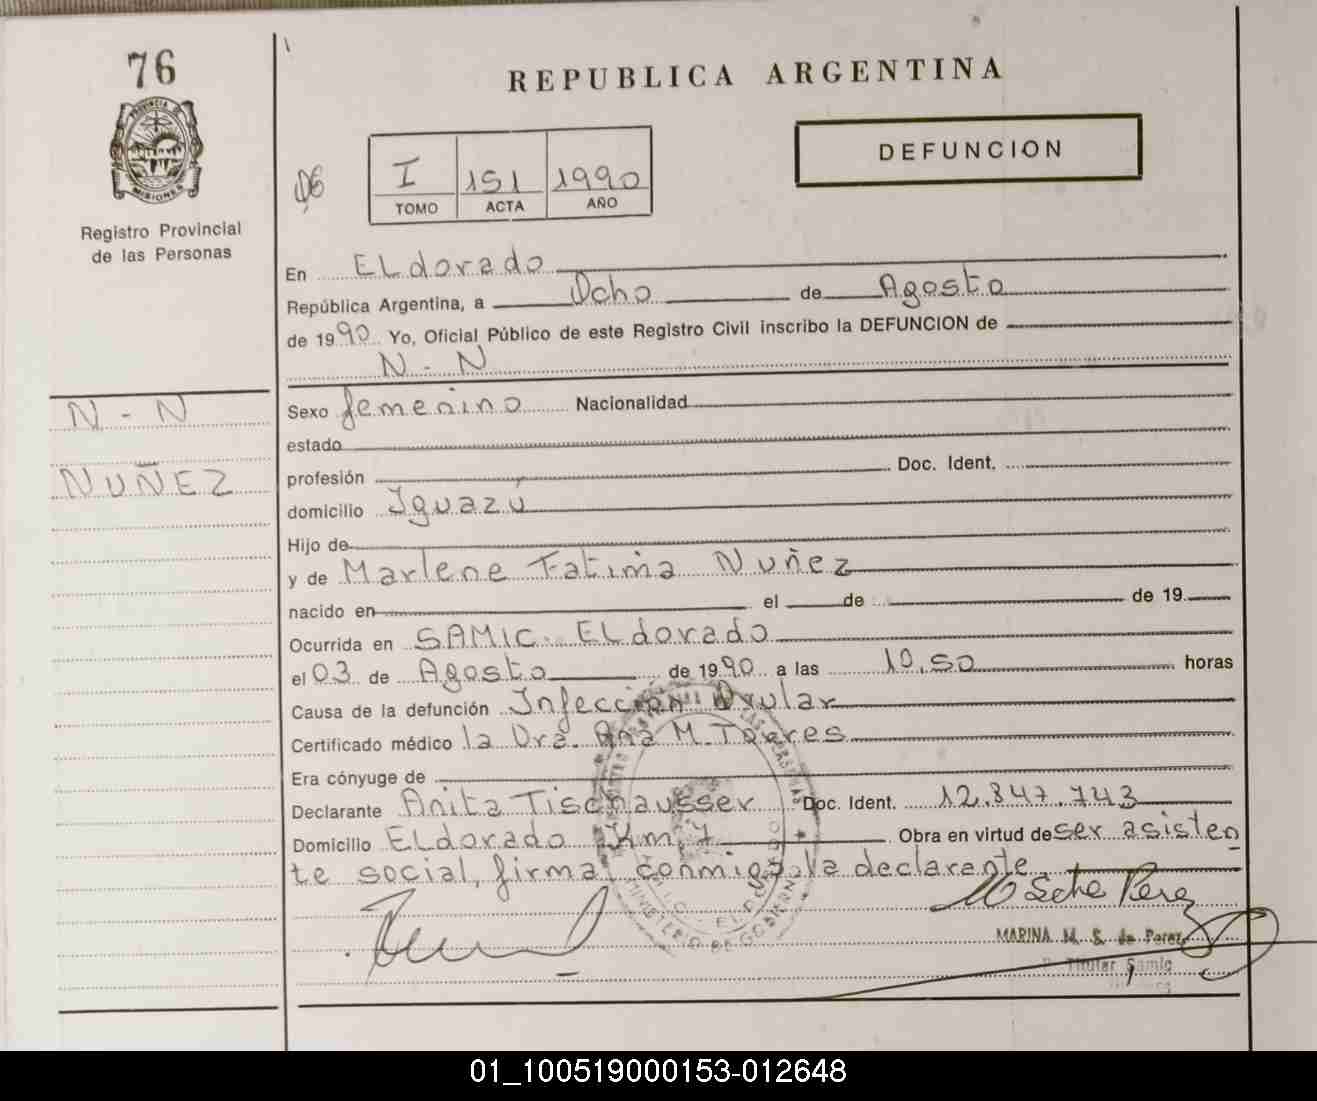 76
PROVINCIA DE
MISIONES
Registro Provincial
de las Personas
REPUBLICA ARGENTINA
DEFUNCION
I 151 1990
TOMO ACTA AÑO
En ELdorado
República Argentina, a Ocho de Agosto
de 1990 Yo, Oficial Público de este Registro Civil inscribo la DEFUNCION de
N - N
N - N
NUÑEZ
Sexo femenino Nacionalidad
estado
profesión Doc. Ident.
domicilio Iguazú
Hijo de
y de Marlene Fatima Nuñez
nacido en el de de 19
Ocurrida en SAMIC. ELdorado
el 03 de Agosto de 1990 a las 10,50 horas
Causa de la defunción Infección Ovular
Certificado médico la Dra. Ana M. Torres
Era cónyuge de
Declarante Anita Tischausser Doc. Ident. 12.847.743
Domicilio ELdorado Km 7 Obra en virtud de ser asisten
te social, firma conmigo la declarante
MARINA M. S. de Perez
Titular Samic
MINISTERIO DE GOBIERNO
01_100519000153-012648